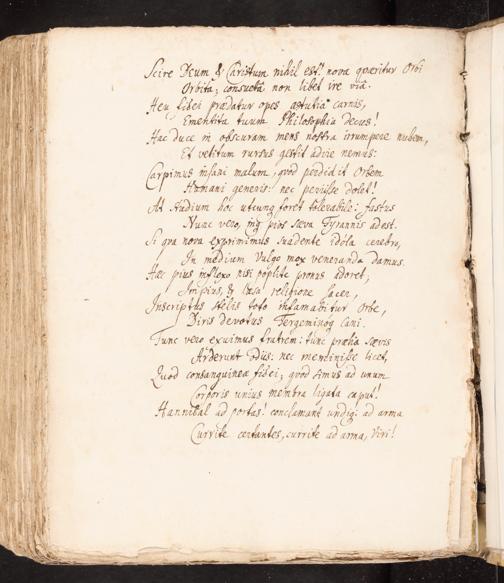 Scire Deum & Christum nihil est: nova quæritur Orbi
Orbita; consuetâ non libet ire viâ.
Heu fidei prædatur opes astutia carnis,
Ementita tuum Philosophia decus!
Hac duce in obscuram mens nostra irrumpere nubem,
Et vetitum rursus gestit adire nemus:
Carpimus insani malum, quod perdidit Orbem
Humani generis: nec periisse dolet!
At studium hoc utcunq foret tolerabile: fastus
Nunc vero, inq pios sæva Tyrannis adest.
Si qua nova exprimimus suadente idola cerebro,
In medium Vulgo mox veneranda damus.
Hæc pius inflexo nisi poplite pronus adoret,
Impius, & læsæ religionis
Inscriptus stelis toto infamabitur Orbe,
Diris devotus Tergeminoq cani.
Tunc vero exuimus fratrem: tunc prælia sævis
Arserunt Odiis: nec meminisse licet,
Quod consanguinea fidei; quod simus ad unum
Corporis unius membra ligata caput!
Hannibal ad portas! conclamant undiq: ad arma
Currite certantes, currite ad arma, Viri!